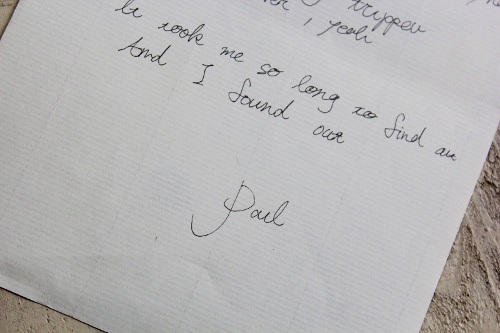 tripper
, yeah
It took me so long to find ou
And I found out
Paul